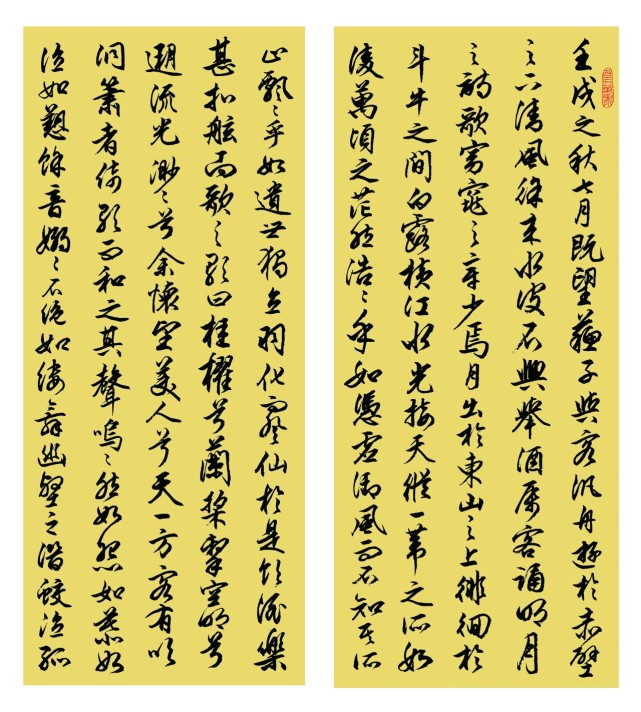 壬戌之秋七月既望蘇子與客汎舟遊於赤壁
之下清風徐来水波不興舉酒属客誦明月
之詩歌窈窕之章少焉月出於東山之上徘徊於
斗牛之間白露横江水光接天縱一葦之所如
凌萬頃之茫然浩々乎如憑虚御風而不知其所
止飄々乎如遺世獨立羽化而登仙於是飲酒樂
甚扣舷而歌之歌曰桂櫂兮蘭槳擊空明兮
遡流光渺々兮余懷望美人兮天一方客有吹
洞簫者倚歌而和之其聲嗚々然如怨如慕如
泣如訴餘音嫋々不絶如縷舞幽壑之潛蛟泣孤